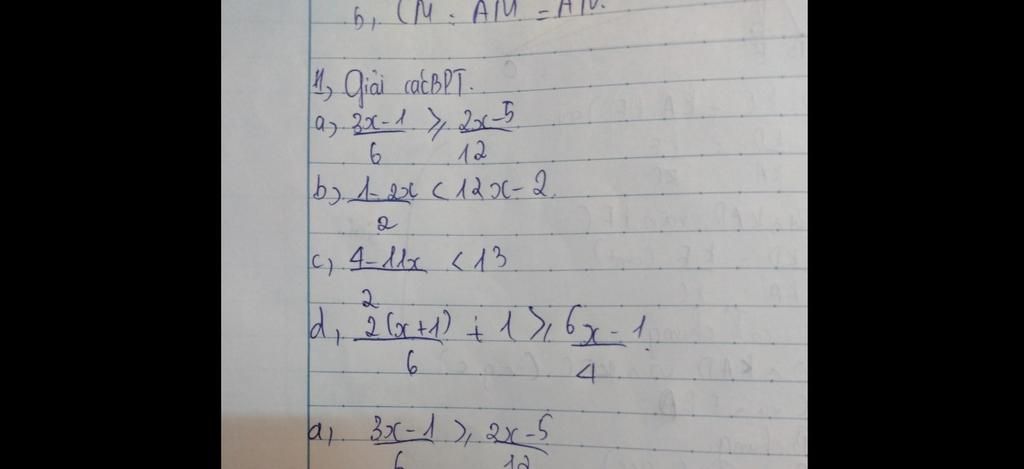 b, CM : AM = AN.
11, Giải cácBPT.
a, 3x-1/6 ≥ 2x-5/12
b, 1-2x/2 < 12x-2
c, 4-11x/2 < 13
d, 2(x+1)/6 + 1 ≥ 6x-1/4
a, 3x-1/6 ≥ 2x-5/12